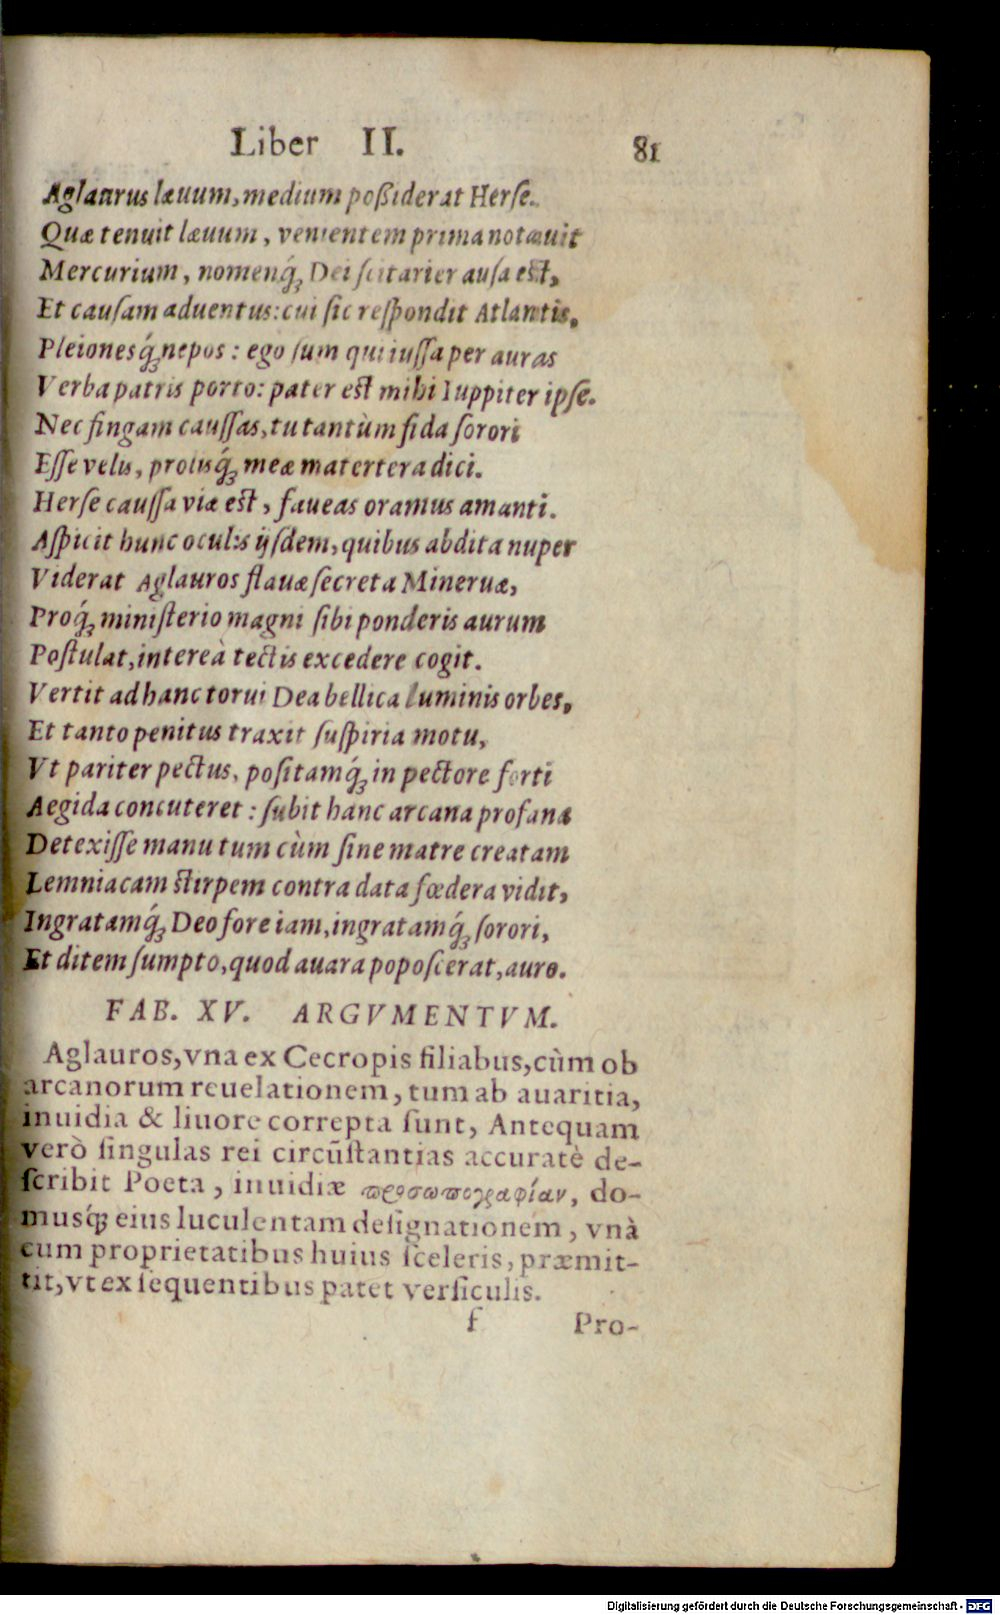 Liber II. 81
Aglaurus læuum, medium poßiderat Herſe.
Quæ tenuit læuum, venientem prima notauit
Mercurium, nomenq́ꝫ Dei ſcitarier auſa eſt,
Et cauſam aduentus: cui ſic reſpondit Atlantis,
Pleionesq́ꝫ nepos: ego ſum qui iuſſa per auras
Verba patris porto: pater eſt mihi Iuppiter ipſe.
Nec fingam cauſſas, tu tantùm fida ſorori
Eſſe velis, prolisq́ꝫ meæ matertera dici.
Herſe cauſſa viæ eſt, faueas oramus amanti.
Aſpicit hunc oculis ijſdem, quibus abdita nuper
Viderat Aglauros flauæ ſecreta Mineruæ,
Proq́ꝫ miniſterio magni ſibi ponderis aurum
Poſtulat, intereà tectis excedere cogit.
Vertit ad hanc torui Dea bellica luminis orbes,
Et tanto penitus traxit ſuſpiria motu,
Vt pariter pectus, poſitamq́ꝫ in pectore forti
Aegida concuteret: ſubit hanc arcana profana
Detexiſſe manu tum cùm ſine matre creatam
Lemniacam ſtirpem contra data fœdera vidit,
Ingratamq́ꝫ Deo fore iam, ingratamq́ꝫ ſorori,
Et ditem ſumpto, quod auara popoſcerat, auro.
FAB. XV. ARGVMENTVM.
Aglauros, vna ex Cecropis filiabus, cùm ob
arcanorum reuelationem, tum ab auaritia,
inuidia & liuore correpta ſunt, Antequam
verò ſingulas rei circūſtantias accuratè de-
ſcribit Poeta, inuidiæ προσωπογραφίαν, do-
musq́ꝫ eius luculentam deſignationem, vnà
cum proprietatibus huius ſceleris, præmit-
tit, vt ex ſequentibus patet verſiculis.
f Pro-
Digitalisierung gefördert durch die Deutsche Forschungsgemeinschaft - DFG